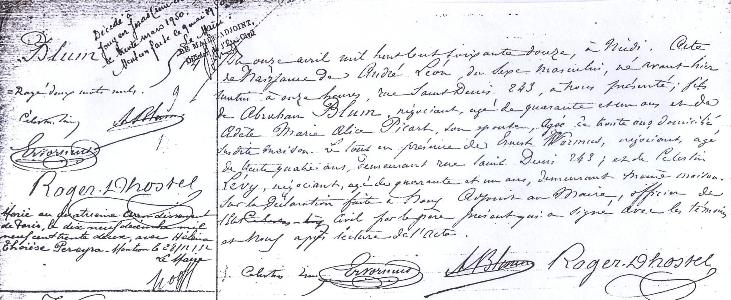 Décédé à
Jouy en Josas
le trente mars 1950
Mention faite le 9 mai 19
Le Maire
DE MAIRE ADJOINT,
Blum
= Rayé deux mots nuls. =
Celestin Lévy
ABlum
EWormus
Roger-Dhostel
Marié au quatrième arrondissement
de Paris, le dix neuf
neuf cent trente deux, avec Hélèna
Thérèse Pereyra - Mention le 28/12/32
Le Maire
Du onze avril mil huit cent soixante douze, à Midi. Acte
de Naissance de André Léon, du sexe masculin, né avant-hier
matin à onze heures, rue Saint Denis 243, à nous présenté; fils
de Abraham Blum, négociant, agé de quarante et un ans et de
Adèle Marie Alice Picart, son épouse, agée de trente ans, domiciliés
susdite maison. Le tout en présence de Ernest Wormus, négociant, agé
de trente quatre ans, demeurant rue Saint Denis 243; et de Celestin
Lévy, négociant, agé de quarante et un ans, demeurant même maison.
Sur la déclaration faite à Nous Adjoint au Maire, officier de
l'Etat Civil par le père présent qui a signé avec les témoins
et Nous après lecture de l'Acte.
Celestin Lévy EWormus ABlum Roger-Dhostel